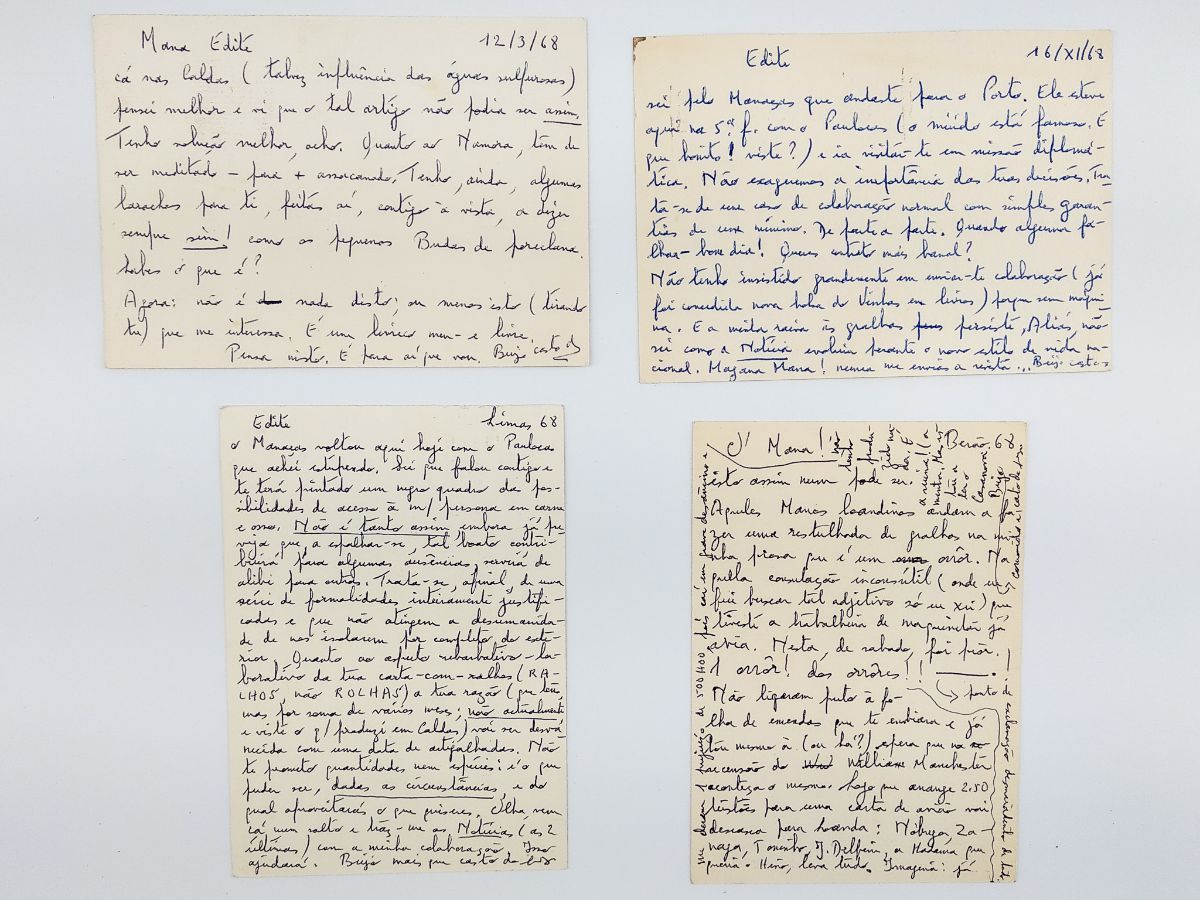 Mana Edite 12/3/68
cá nas Caldas (talvez influência das águas sulfurosas)
pensei melhor e vi que o tal artigo não podia ser assim.
Tenho solução melhor, acho. Quanto ao Namora, tem de
ser meditado - para + assacanado. Tenho, ainda, algumas
larachas para ti, feitas aí, contigo à vista, a dizer
sempre sim! como os pequenos Budas de porcelana.
Sabes o que é?
Agora: não é nada disto; ou menos isto (tirando
tu) que me interessa. É um lívrico meu - e livre.
Pensa nisto. É para aí que vou. Beijo casto do
Edite 16/XI/68
sei pelo Manaças que andaste para o Porto. Ele esteve
aqui na 5.ª f. com o Paulocas (o miúdo está famoso. E
que bonito! viste?) e ia visitar-te em missão diplomá-
tica. Não exageremos a importância das tuas decisões. Tra-
ta-se de um caso de colaboração normal com simples garan-
tias de um mínimo. De parte a parte. Quando alguma fa-
lhar - bom dia! Queres contrato mais banal?
Não tenho insistido grandemente em enviar-te colaboração (já
foi concedida nova bolsa do Vinhas em livros) porque sem máqui-
na. E a minha raiva às gralhas persiste. Aliás, não
sei como a Notícia evoluiu perante o novo estilo de vida na-
cional. Magana Mana! nunca me envias a revista... Beijo casto
Edite Limas 68
o Manaças voltou aqui hoje com o Paulocas
que achei estupendo. Sei que falou contigo e
te terá pintado um negro quadro das pos-
sibilidades de acesso à m/ persona em carne
e osso. Não é tanto assim, embora já pre-
veja que, a espalhar-se, tal boato contri-
buirá para algumas ausências, servirá de
alibi para outras. Trata-se, afinal, de uma
série de formalidades inteiramente justifi-
cadas e que não atingem a desumanida-
de de nos isolarem por completo do exte-
rior. Quanto ao aspecto rebarbativo-la-
borativo da tua carta-com-ralhos (RA-
LHOS, não ROLHAS) a tua razão (que tens,
mas por soma de vários meses; não actualmente
e viste o q/ produzi em Caldas) vai ser desva-
necida com uma data de artigalhadas. Não
te prometo quantidades nem espécies: é o que
puder ser, dadas as circunstâncias, e do
qual aproveitarás o que quiseres. Olha, vem
cá num salto e traz-me as Notícias (as 2
últimas) com a minha colaboração. Isso
ajudará. Beijo mais que casto do
Ó Mana! Beirão, 68
isto assim num pode ser.
Aqueles Manos loandinos andam a
zer uma restulhada de gralhas na mi
nha prosa que é um orrôr. Na
quella consulação inconsútil (onde eu
fui buscar tal adjetivo só eu xei) que
tiveste a trabalheira de maquinetar já
avia. Nesta, de sabado, foi piôr.
1 orrôr! dos orrôres!!
Não ligaram puto à fo-
lha de emendas que te enviara e já
tou mesmo à (ou há?) espera que na
ascensão do William Manchester
aconteça o mesmo. Logo que arranje 2.50
tustões para uma carta de avião vai
descasca para Loanda: Nóbrega, Za-
naga, Toninho, J. Delfim, a Madama que
queria o Hino, leva tudo. Imagina: já
me deram prejuizo de 500$00 pois caí em grave desânimo e
não
tenho
produ-
zido na-
da. É
a ruina! (a
ponto de exclamação desmaiabundo de